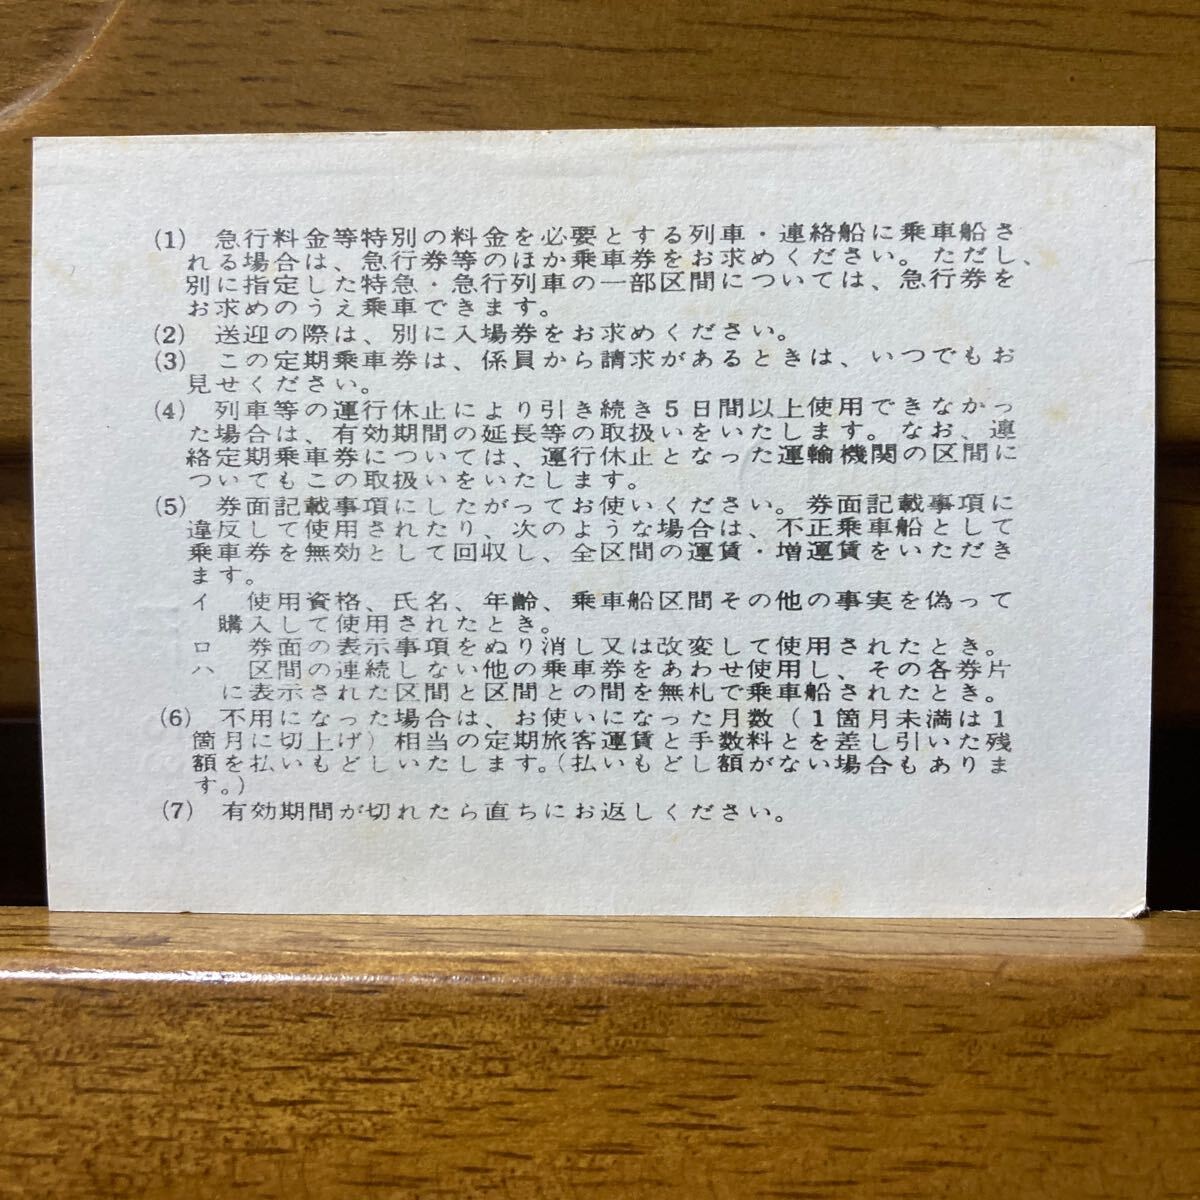 (1) 急行料金等特別の料金を必要とする列車・連絡船に乗車船さ
れる場合は、急行券等のほか乗車券をお求めください。ただし、
別に指定した特急・急行列車の一部区間については、急行券を
お求めのうえ乗車できます。
(2) 送迎の際は、別に入場券をお求めください。
(3) この定期乗車券は、係員から請求があるときは、いつでもお
見せください。
(4) 列車等の運行休止により引き続き5日間以上使用できなかっ
た場合は、有効期間の延長等の取扱いをいたします。なお、連
絡定期乗車券については、運行休止となった運輸機関の区間に
ついてもこの取扱いをいたします。
(5) 券面記載事項にしたがってお使いください。券面記載事項に
違反して使用されたり、次のような場合は、不正乗車船として
乗車券を無効として回収し、全区間の運賃・増運賃をいただき
ます。
イ 使用資格、氏名、年齢、乗車船区間その他の事実を偽って
購入して使用されたとき。
ロ 券面の表示事項をぬり消し又は改変して使用されたとき。
ハ 区間の連続しない他の乗車券をあわせ使用し、その各券片
に表示された区間と区間との間を無札で乗車船されたとき。
(6) 不用になった場合は、お使いになった月数(1箇月未満は1
箇月に切上げ)相当の定期旅客運賃と手数料とを差し引いた残
額を払いもどしいたします。(払いもどし額がない場合もありま
す。)
(7) 有効期間が切れたら直ちにお返しください。